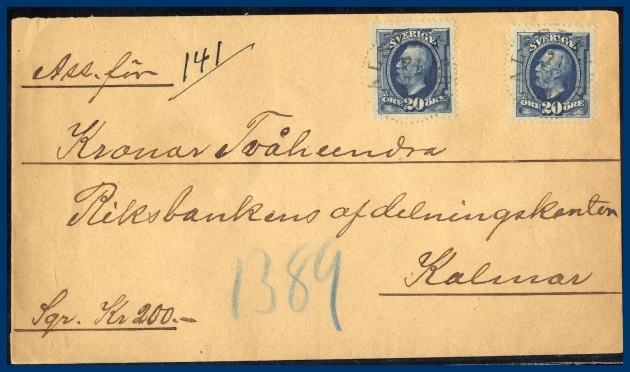 SVERIGE SVERIGE
20 20
ÖRE ÖRE ÖRE ÖRE
Ass. för 141
Kronor Tvåhundra
Riksbankens afdelningskontor
Kalmar
1389
Sgr. Kr 200.-